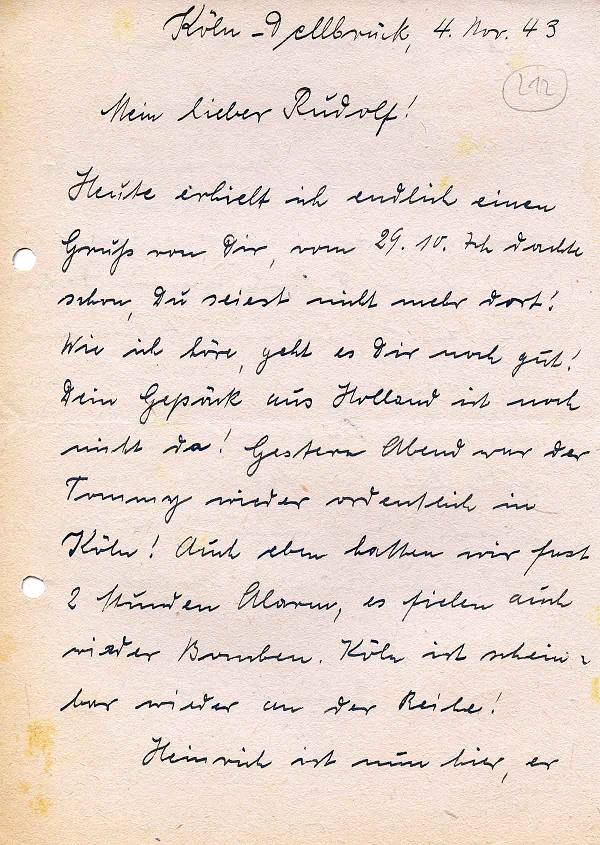 Köln-Dellbrück, 4. Nov. 43
212
Mein lieber Rudolf!
Heute erhielt ich endlich einen
Gruß von Dir, vom 29.10. Ich dachte
schon, Du seiest nicht mehr dort!
Wie ich höre, geht es Dir noch gut!
Dein Gepäck aus Holland ist noch
nicht da! Gestern Abend war der
Tommy wieder ordentlich in
Köln! Auch eben hatten wir fast
2 Stunden Alarm, es fielen auch
wieder Bomben. Köln ist schein-
bar wieder an der Reihe!
Heinrich ist nun hier, er